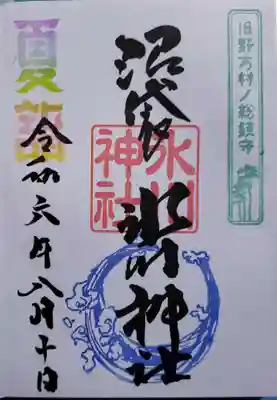 旧野方村ノ総鎮守
沼袋 氷川神社
氷川
神社
夏詣
令和六年八月十日